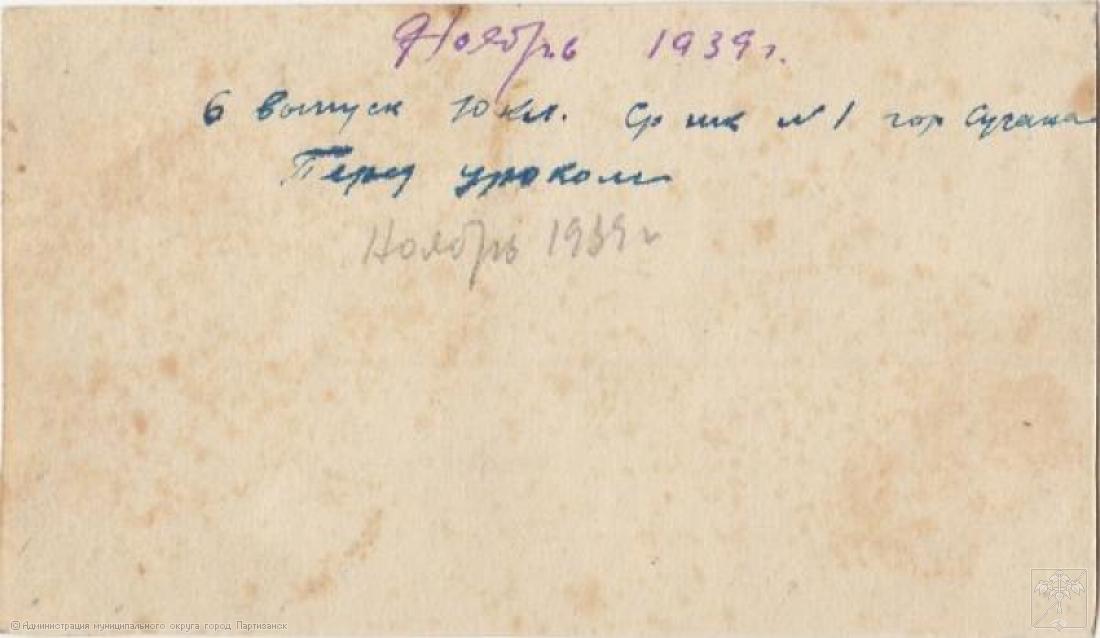 Ноябрь 1939 г.
6 выпуск 10 кл. Ср шк № 1 гор Сучана
Перед уроком
Ноябрь 1939 г
© Администрация муниципального округа город Партизанск